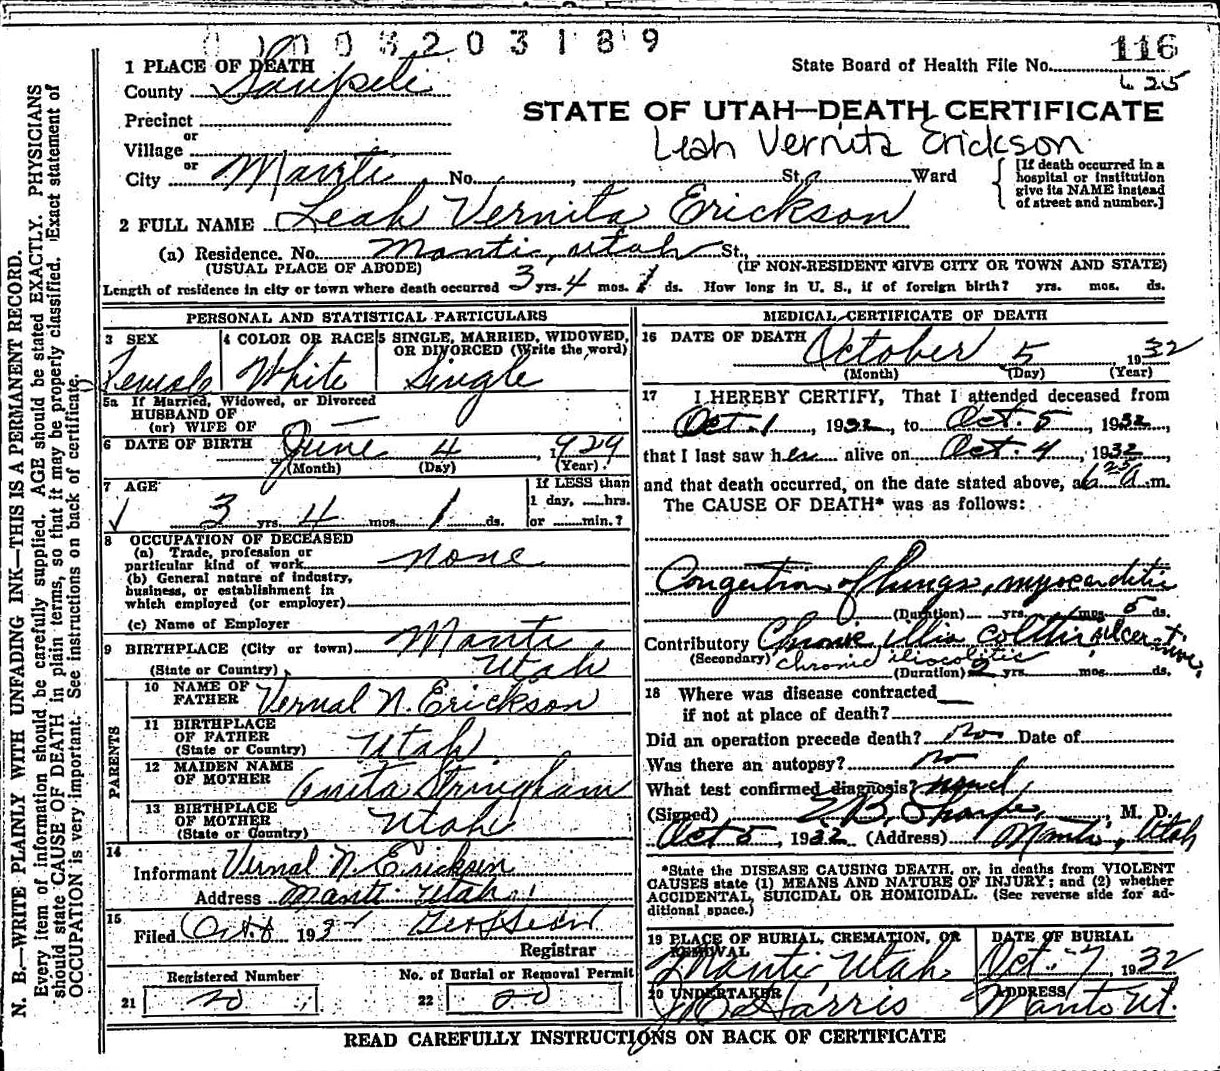 0 1 0 0 3 2 0 3 1 8 9
116
1 PLACE OF DEATH
State Board of Health File No.
625
County Sanpete
STATE OF UTAH—DEATH CERTIFICATE
Precinct
or
Leah Vernita Erickson
Village
or
City Manti No. , St., Ward
[If death occurred in a hospital or institution give its NAME instead of street and number.]
2 FULL NAME Leah Vernita Erickson
(a) Residence. No. Manti, Utah St.,
(USUAL PLACE OF ABODE) (IF NON-RESIDENT GIVE CITY OR TOWN AND STATE)
Length of residence in city or town where death occurred 3 yrs. 4 mos. 1 ds. How long in U. S., if of foreign birth? yrs. mos. ds.
PERSONAL AND STATISTICAL PARTICULARS
3 SEX
Female
4 COLOR OR RACE
White
5 SINGLE, MARRIED, WIDOWED,
OR DIVORCED (Write the word)
Single
5a If Married, Widowed, or Divorced
HUSBAND OF
(or) WIFE OF
6 DATE OF BIRTH June 4, 1929
(Month) (Day) (Year)
7 AGE
3 yrs. 4 mos. 1 ds.
If LESS than
1 day, hrs.
or min.?
8 OCCUPATION OF DECEASED
(a) Trade, profession or
particular kind of work none
(b) General nature of industry,
business, or establishment in
which employed (or employer)
(c) Name of Employer
9 BIRTHPLACE (City or town) Manti
(State or Country) Utah
PARENTS
10 NAME OF
FATHER Vernal N. Erickson
11 BIRTHPLACE
OF FATHER
(State or Country) Utah
12 MAIDEN NAME
OF MOTHER Anita Stringham
13 BIRTHPLACE
OF MOTHER
(State or Country) Utah
14
Informant Vernal N. Erickson
Address Manti Utah
15
Filed Oct 8 193
Registrar
Registered Number
21 20
No. of Burial or Removal Permit
22 20
MEDICAL CERTIFICATE OF DEATH
16 DATE OF DEATH October 5 1932
(Month) (Day) (Year)
17 I HEREBY CERTIFY, That I attended deceased from
Oct. 1, 1932, to Oct. 5, 1932,
that I last saw her alive on Oct. 4, 1932
and that death occurred, on the date stated above, at 6 25 a.m.
The CAUSE OF DEATH* was as follows:
Congestion of lungs, myocarditis
(Duration) yrs. mos. 5 ds.
Contributory Chronic illio colitis, ulcerative,
(Secondary) chronic iliocolitis
(Duration) 2 yrs. mos. ds.
18 Where was disease contracted
if not at place of death?
Did an operation precede death? No Date of
Was there an autopsy? no
What test confirmed diagnosis? usual
(Signed) E. B. Sharpe, M. D.
Oct 5 1932 (Address) Manti, Utah
*State the DISEASE CAUSING DEATH, or, in deaths from VIOLENT
CAUSES state (1) MEANS AND NATURE OF INJURY; and (2) whether
ACCIDENTAL, SUICIDAL OR HOMICIDAL. (See reverse side for ad-
ditional space.)
19 PLACE OF BURIAL, CREMATION, OR
REMOVAL
Manti Utah
DATE OF BURIAL
Oct. 7, 1932
20 UNDERTAKER
Harris
ADDRESS
Manti Ut.
READ CAREFULLY INSTRUCTIONS ON BACK OF CERTIFICATE
N. B.—WRITE PLAINLY WITH UNFADING INK—THIS IS A PERMANENT RECORD.
Every item of information should be carefully supplied. AGE should be stated EXACTLY. PHYSICIANS
should state CAUSE OF DEATH in plain terms, so that it may be properly classified. Exact statement of
OCCUPATION is very important. See instructions on back of certificate.